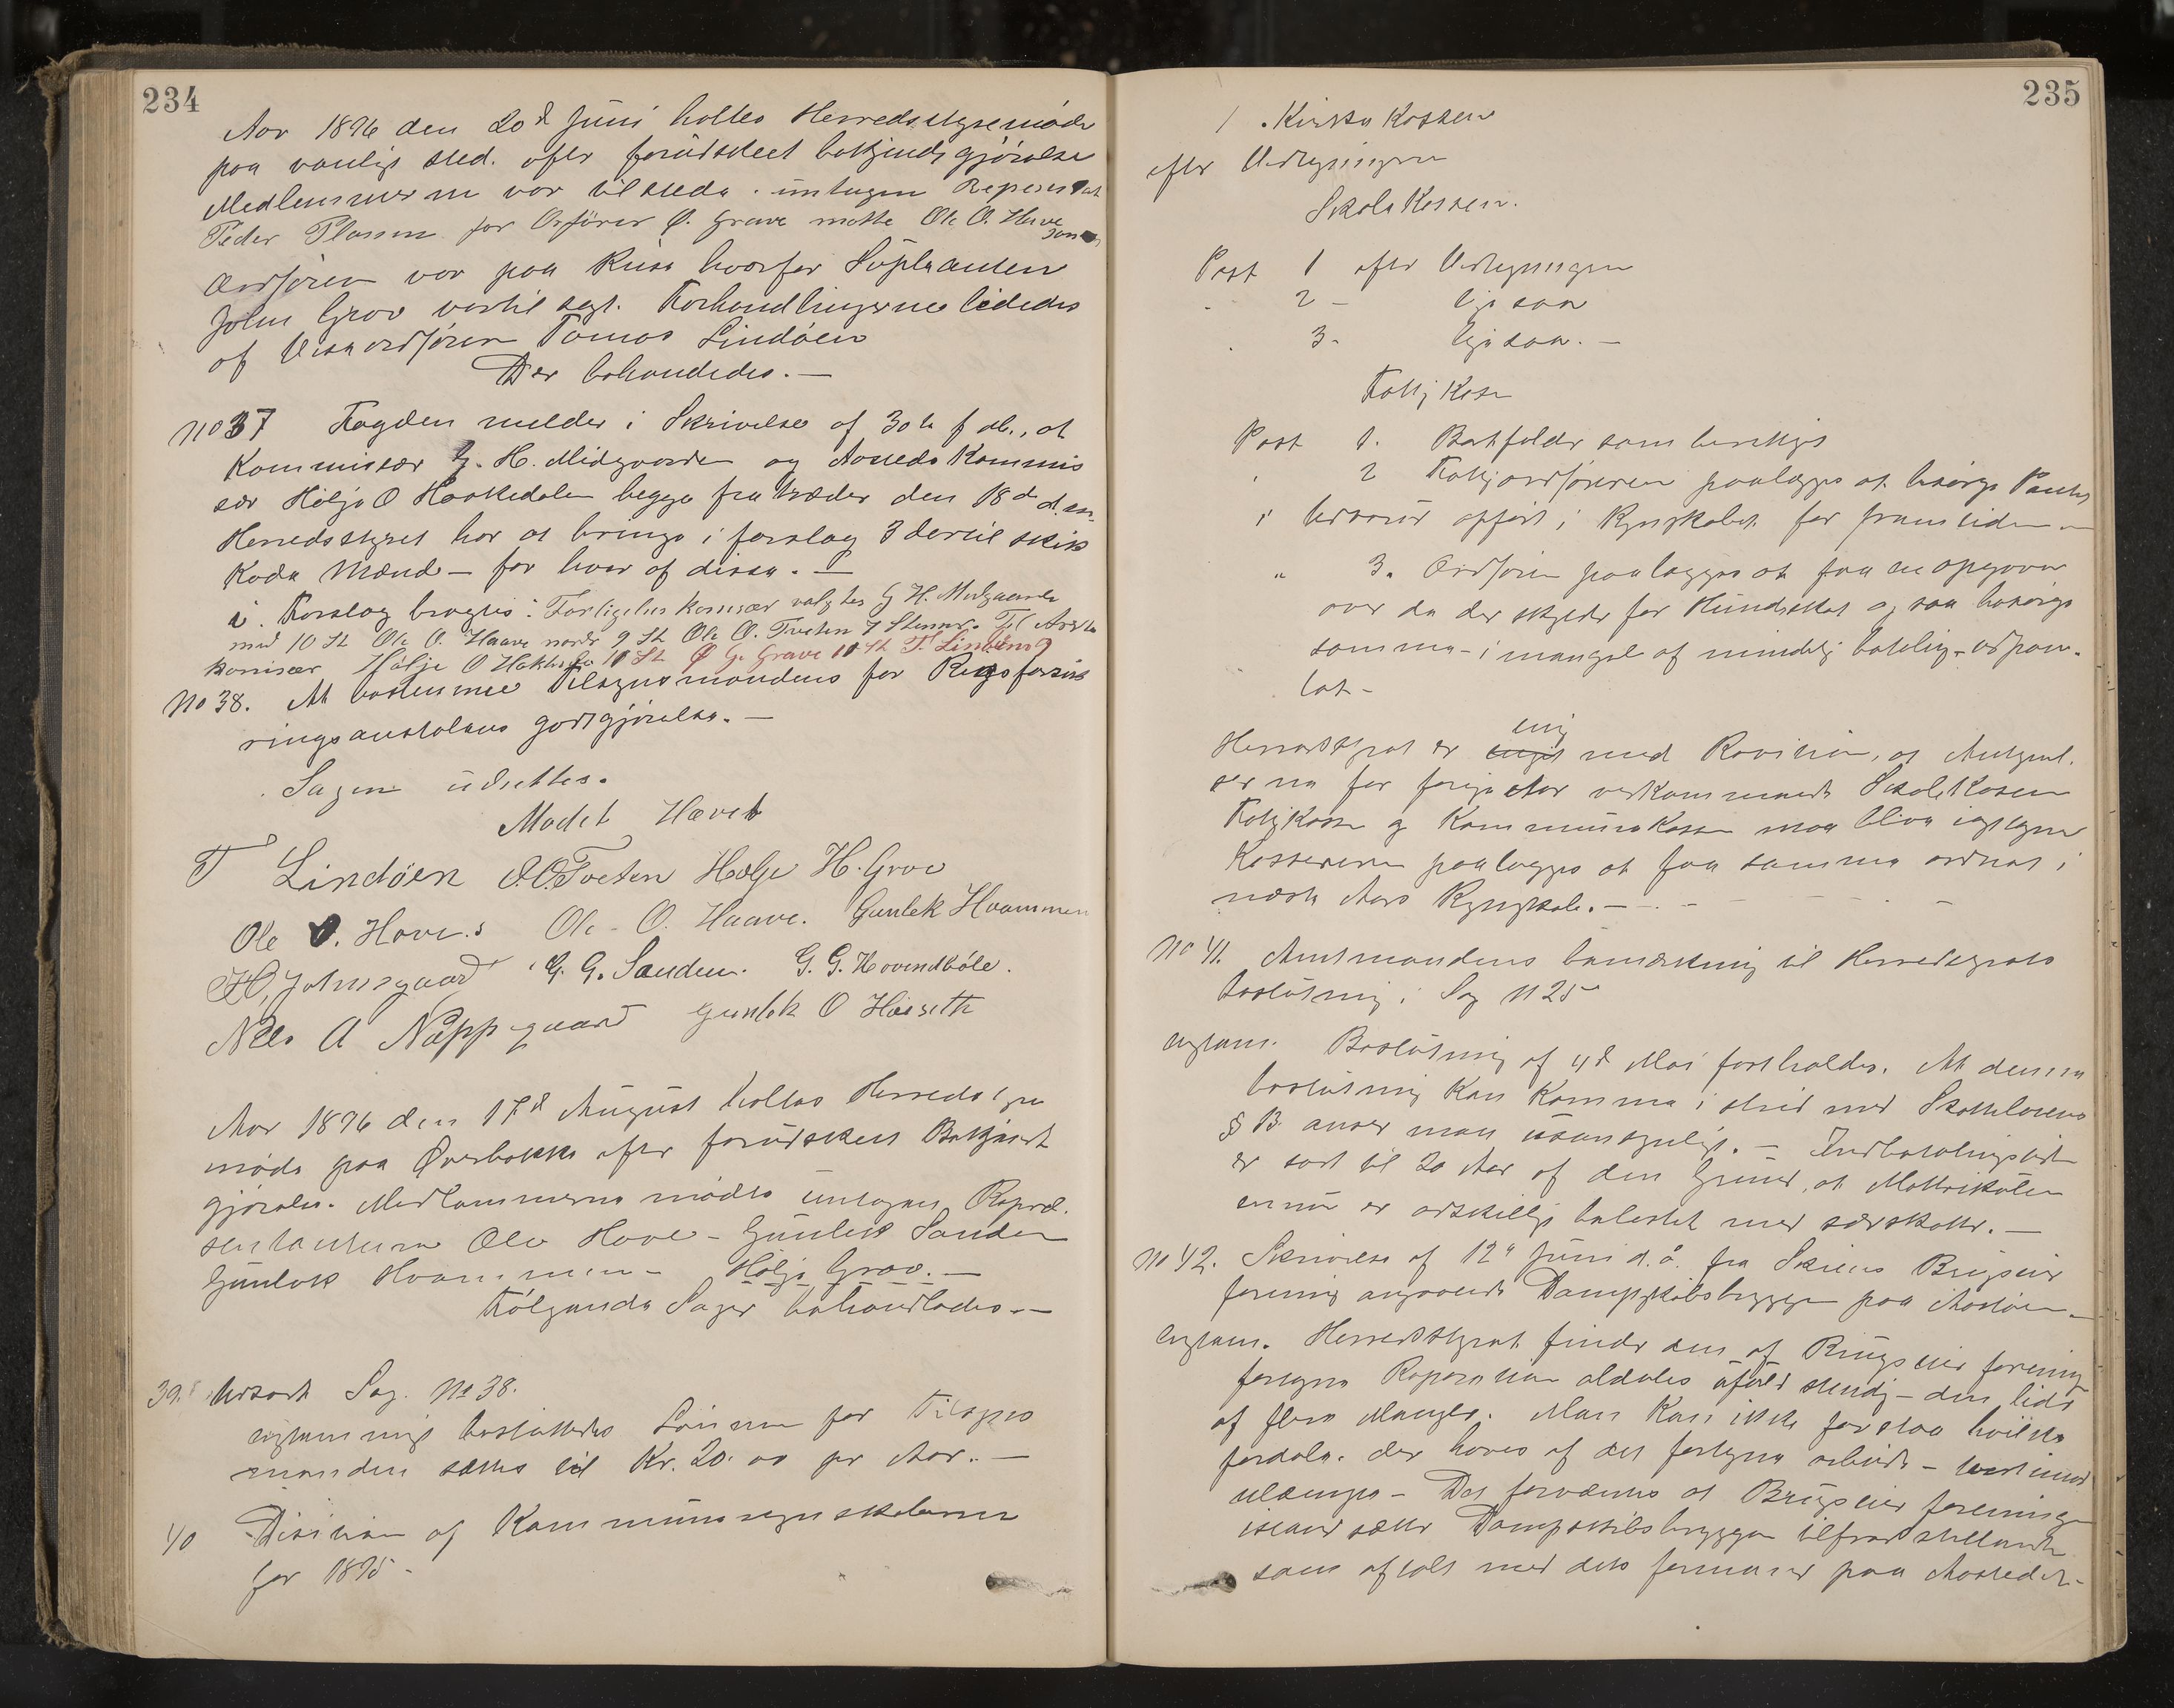 234
Aar 1896 den 20d Juni holtes Herredsstyremøde
paa vanligt sted. efter forudskeet bekjendtgjørelse
Medlemmerne var tilstede. untagen Represent
Peder Plassen for Orfører Ø. Grave møtte Ole O. Have
Ordføren var paa Reise hvorfor Suplianten
John Grov var tilsagt. Forhandlingerne lededes
af Viseordføren Tomas Lindøen
Der behandledes. —
No 37 Fogden melder i Skrivelse af 30te f. M., at
Kommissær G. H. Midgaarden og Aasteds Kommis
sær Hølje O Haakedalen begge fratræder den 18de d. m.
Herredsstyret har at bringe i forslag 3 dertil skik
kede Mænd — for hver af disse. —
i Forslag bragtes: Forligelses komisær valgtes G H. Midgaarde
med 10 St Ole O. Haave nordr 9 St Ole O. Tveten 7 Stemr. Til Aasta
komisær Hølje O Hakedale 10 St Ø G. Grave 10 St T. Lindøen 9
No 38. At bestemme Tilsynsmandens for Rigsforsik
ringsanstaltens godtgjørelse. —
Sagen udsettes.
Mødet Hævet
T Lindöen O.O.Tveten Hølje H. Grov
Ole O. Hove. s Ole O. Haave. Gunlek Hvammen
H. Johnsgaard G. G. Sanden. G. G. Hovendböle.
Nils A Nappgaard Gunlek O Haseth
Aar 1896 den 17d August holtes Herredstyre
møde paa Øverbakke efter forudskeet Bekjendt
gjørelse. Medlemmerne mødte untagen Repræ.
sentanterne Ole Hove — Gunlek Sanden
Gunlek Hvammen — Hølje Grov. —
Følgende Sager behandledes —
39. Udsat Sag. No 38.
enstemmigt besluttedes Lönnen for Tilsyns
manden sættes til Kr. 20.00 pr Aar. —
40 Desision af Kommuneregnskaberne
for 1895 —
235
1 . Kirke Kassen
efter Udtegningen
Skole Kassen.
Post 1 efter Udtegningen
" 2 — ligesaa
" 3. ligesaa. —
Fattig Kasse
Post 1. Bortfalder som berigtiget
" 2 Fattigordføreren paalægges at besørge
i opført i Regnskabet for fremtiden —
" 3. Ordføren paalægges at faa en opgave
over de der skylder for Hundeskat og saa besørge
samme — i mangel af mindelig betaling — udpan-
tet —
enig
Herredstyret er enigt med Revision, at
serne for forrige Aar vedkommende Skolekassen
Fattigkassen og Kommunekassen maa blive
Kassereren paalægges at faa samme ordnet i
næste Aars Regnskab. —
No 41. Amtmandens bemærkning til Herredstyrets
beslutning i Sag N 25
enstem. Beslutning af 4d Mai fastholdes. At denne
beslutning kan komme i strid med Skatteloven
§ 13 anser man usansynligt. — Indbetalingstiden
er sat til 20 Aar af den Grund, at Mattrikulen
ennu er adskillig belastet med særskatter. —
No 42. Skrivelse af 12te Juni d. å. fra Skiens Brugseier
forening angaaende Dampskibsbryggen paa
enstem. Herredstyret finder den af Brugseier forening
foretagne Reparation aldeles ufuldstendig — den lider
af flere Mangler. Man kan ikke forstaa hvilke
fordele der haves af det foretagne arbeide —
— Det forventes at Brugseier foreningen
istandsætter Dampskibsbryggen tilfredstillende
som aftalt med dets formand paa Aastedet. —